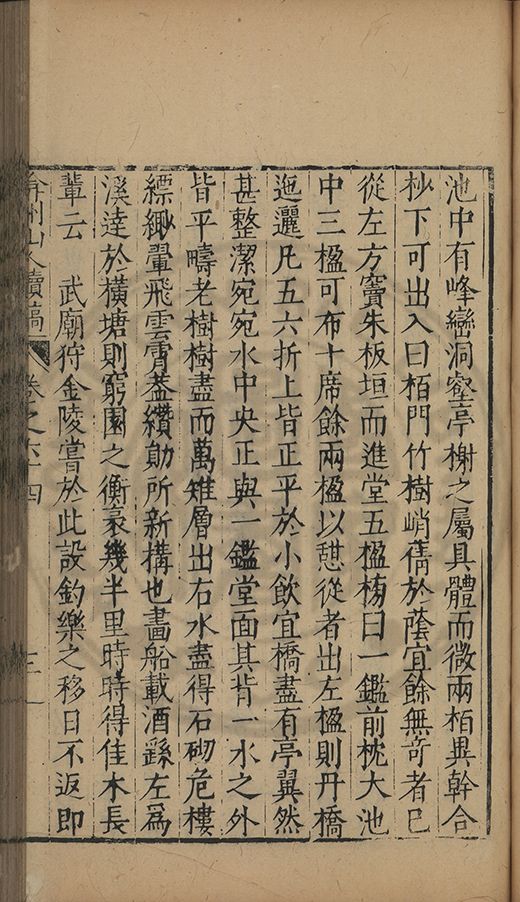 池中有峰巒洞壑亭榭之屬具體而微兩栢異幹合
杪下可出入曰栢門竹樹峭蒨於蔭宜餘無竒者已
從左方竇朱板垣而進堂五楹榜曰一鑑前枕大池
中三楹可布十席餘兩楹以憇從者出左楹則丹橋
迤邐凡五六折上皆正平於小飲宜橋盡有亭翼然
甚整潔宛宛水中央正與一鑑堂面其背一水之外
皆平疇老樹樹盡而萬雉層出右水盡得石砌危樓
縹緲翬飛雲霄葢纘勛所新構也畫船載酒繇左為
溪達於橫塘則窮園之衡袤幾半里時時得佳木長
輩云　武廟狩金陵嘗於此設釣樂之移日不返即
弇州山人續稿　卷之六十四